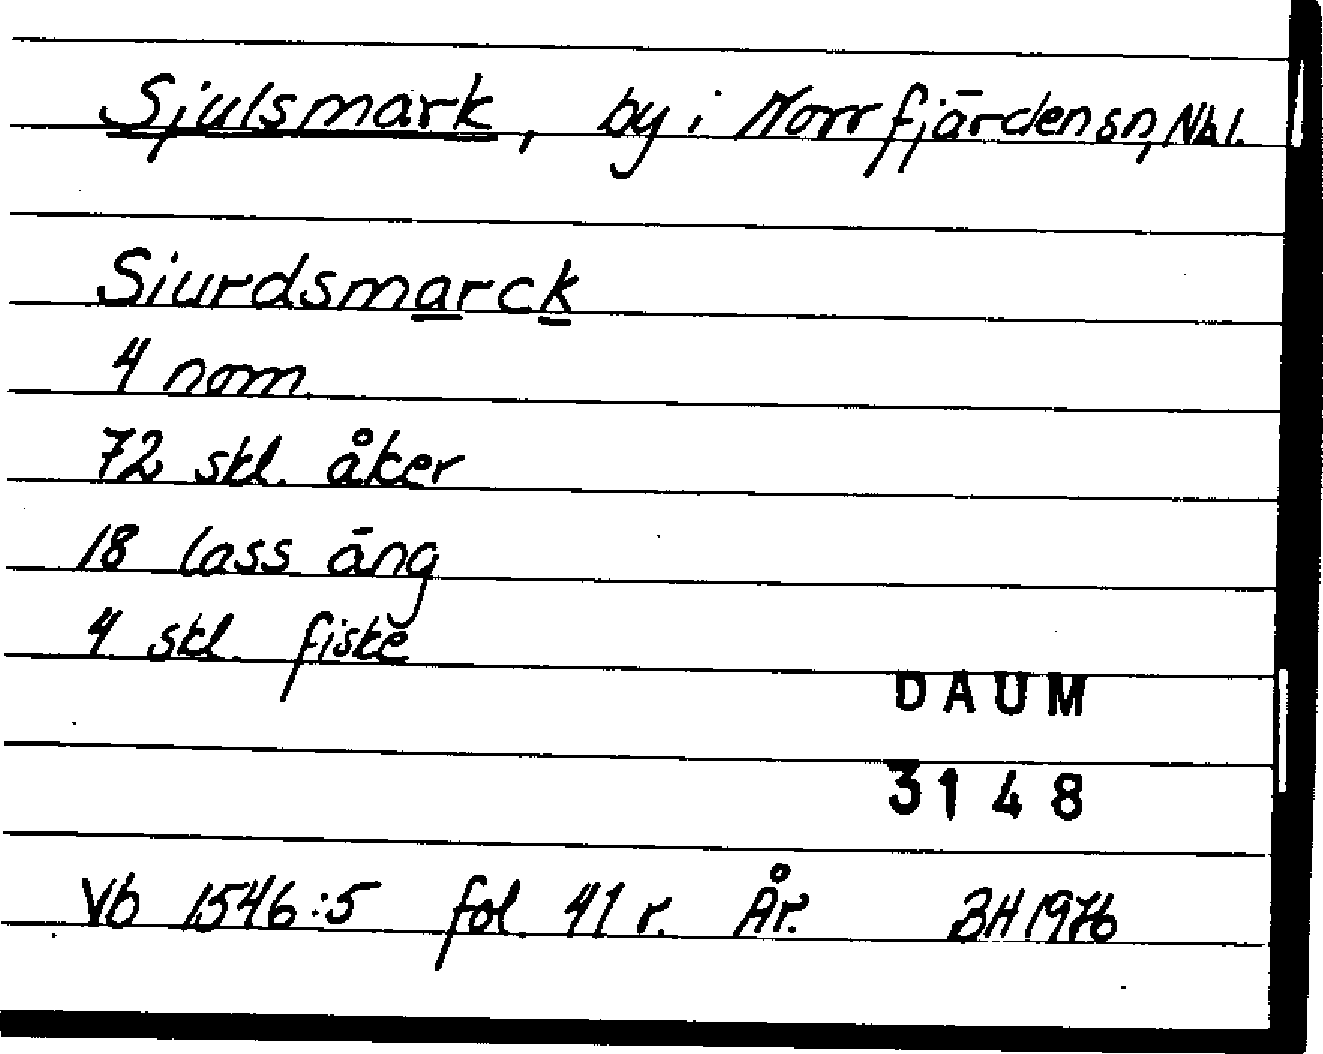 Sjulsmark, by i Norrfjärden sn, Nbl.
Siurdsmarck
4 nom.
72 skl. åker
18 lass äng
4 skl. fiske
DAUM
3148
Vb 1546:5 fol. 41 r. År. BH 1976